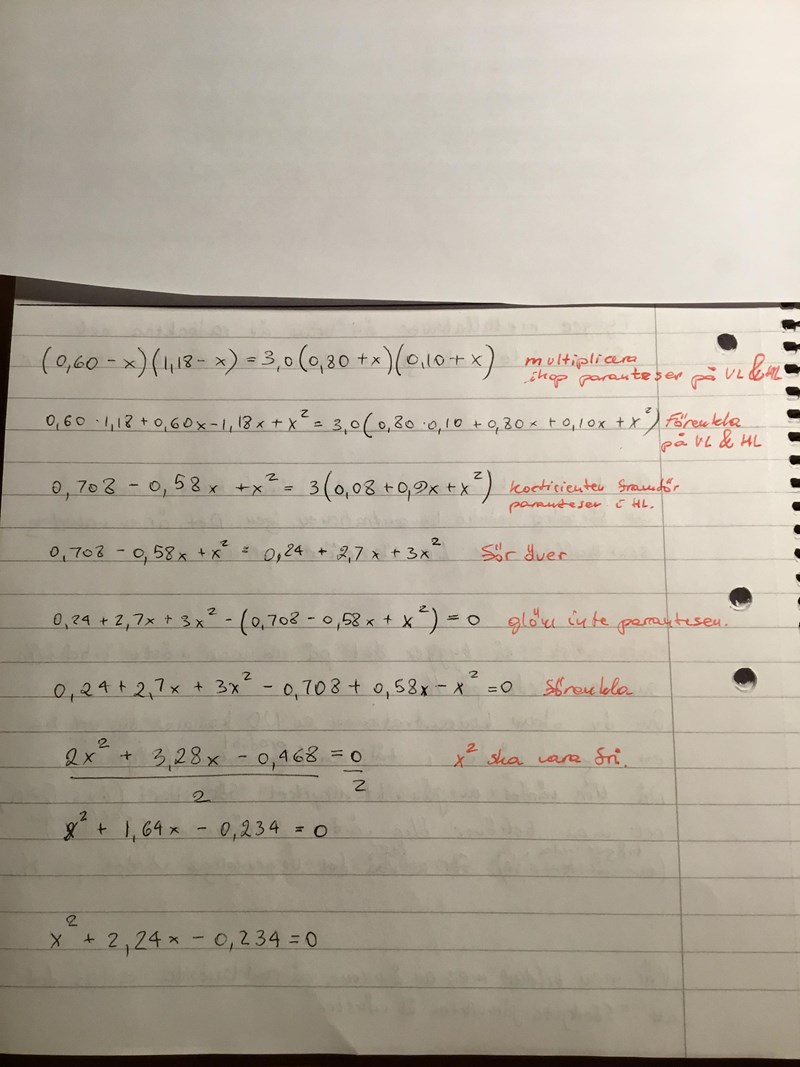 (0,60 - x)(1,18 - x) = 3,0(0,80 + x)(0,10 + x) multiplicera
ihop paranteser på VL & HL
0,60 · 1,18 + 0,60x - 1,18x + x² = 3,0(0,80 · 0,10 + 0,80x + 0,10x + x²) Förenkla
på VL & HL
0,708 - 0,58x + x² = 3(0,08 + 0,9x + x²) koeficienten framför
paranteser i HL.
0,708 - 0,58x + x² = 0,24 + 2,7x + 3x² för över
0,24 + 2,7x + 3x² - (0,708 - 0,58x + x²) = 0 glöm inte parrantesen.
0,24 + 2,7x + 3x² - 0,708 + 0,58x - x² = 0 förenkla
2x² + 3,28x - 0,468 = 0 x² ska vara fri.
2 2
x² + 1,64x - 0,234 = 0
x² + 2,24x - 0,234 = 0